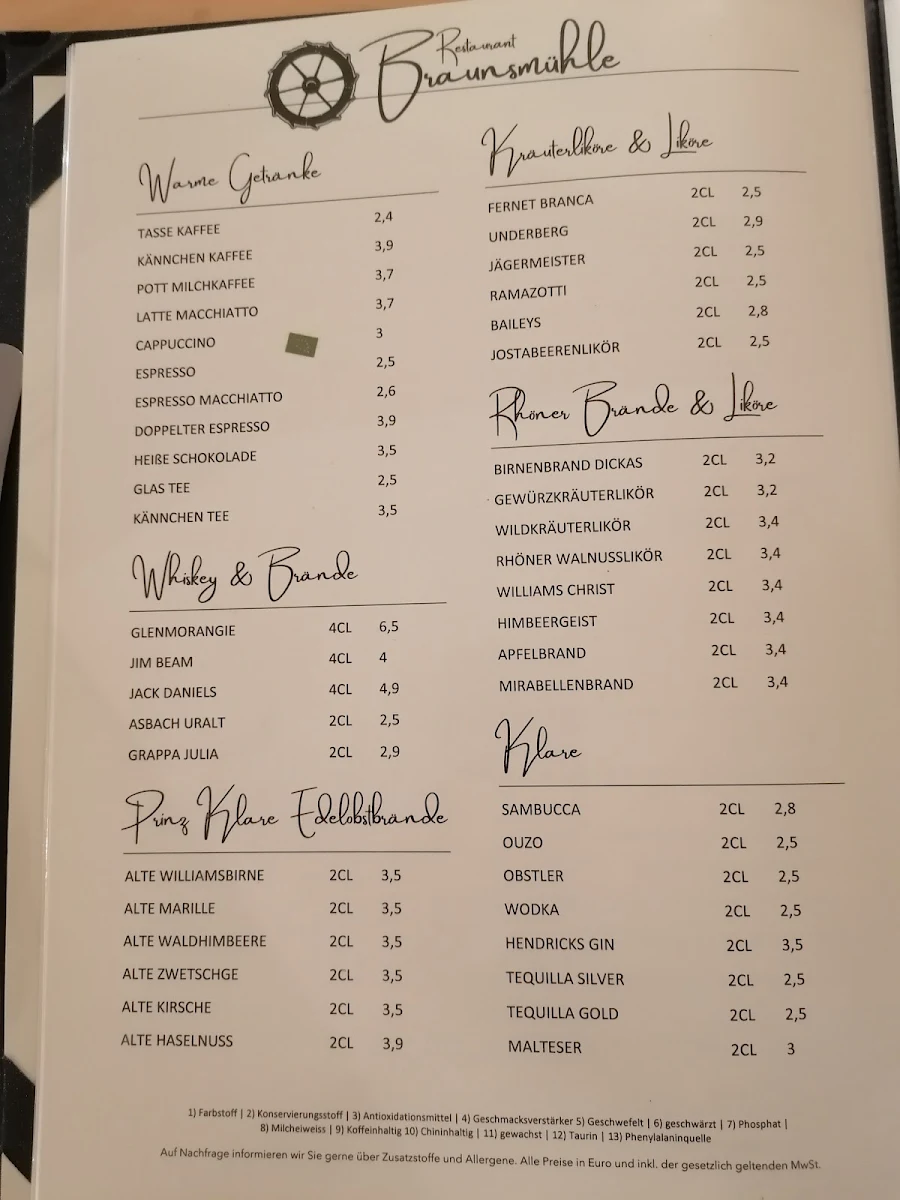 Restaurant
Braunsmühle
Warme Getränke
TASSE KAFFEE 2,4
KÄNNCHEN KAFFEE 3,9
POTT MILCHKAFFEE 3,7
LATTE MACCHIATTO 3,7
CAPPUCCINO 3
ESPRESSO 2,5
ESPRESSO MACCHIATTO 2,6
DOPPELTER ESPRESSO 3,9
HEIßE SCHOKOLADE 3,5
GLAS TEE 2,5
KÄNNCHEN TEE 3,5
Whiskey & Brände
GLENMORANGIE 4CL 6,5
JIM BEAM 4CL 4
JACK DANIELS 4CL 4,9
ASBACH URALT 2CL 2,5
GRAPPA JULIA 2CL 2,9
Prinz Klare Edelobstbrände
ALTE WILLIAMSBIRNE 2CL 3,5
ALTE MARILLE 2CL 3,5
ALTE WALDHIMBEERE 2CL 3,5
ALTE ZWETSCHGE 2CL 3,5
ALTE KIRSCHE 2CL 3,5
ALTE HASELNUSS 2CL 3,9
Kräuterliköre & Liköre
FERNET BRANCA 2CL 2,5
UNDERBERG 2CL 2,9
JÄGERMEISTER 2CL 2,5
RAMAZOTTI 2CL 2,5
BAILEYS 2CL 2,8
JOSTABEERENLIKÖR 2CL 2,5
Rhöner Brände & Liköre
BIRNENBRAND DICKAS 2CL 3,2
GEWÜRZKRÄUTERLIKÖR 2CL 3,2
WILDKRÄUTERLIKÖR 2CL 3,4
RHÖNER WALNUSSLIKÖR 2CL 3,4
WILLIAMS CHRIST 2CL 3,4
HIMBEERGEIST 2CL 3,4
APFELBRAND 2CL 3,4
MIRABELLENBRAND 2CL 3,4
Klare
SAMBUCCA 2CL 2,8
OUZO 2CL 2,5
OBSTLER 2CL 2,5
WODKA 2CL 2,5
HENDRICKS GIN 2CL 3,5
TEQUILLA SILVER 2CL 2,5
TEQUILLA GOLD 2CL 2,5
MALTESER 2CL 3
1) Farbstoff | 2) Konservierungsstoff | 3) Antioxidationsmittel | 4) Geschmacksverstärker 5) Geschwefelt | 6) geschwärzt | 7) Phosphat |
8) Milcheiweiss | 9) Koffeinhaltig 10) Chininhaltig | 11) gewachst | 12) Taurin | 13) Phenylalaninquelle
Auf Nachfrage informieren wir Sie gerne über Zusatzstoffe und Allergene. Alle Preise in Euro und inkl. der gesetzlich geltenden MwSt.